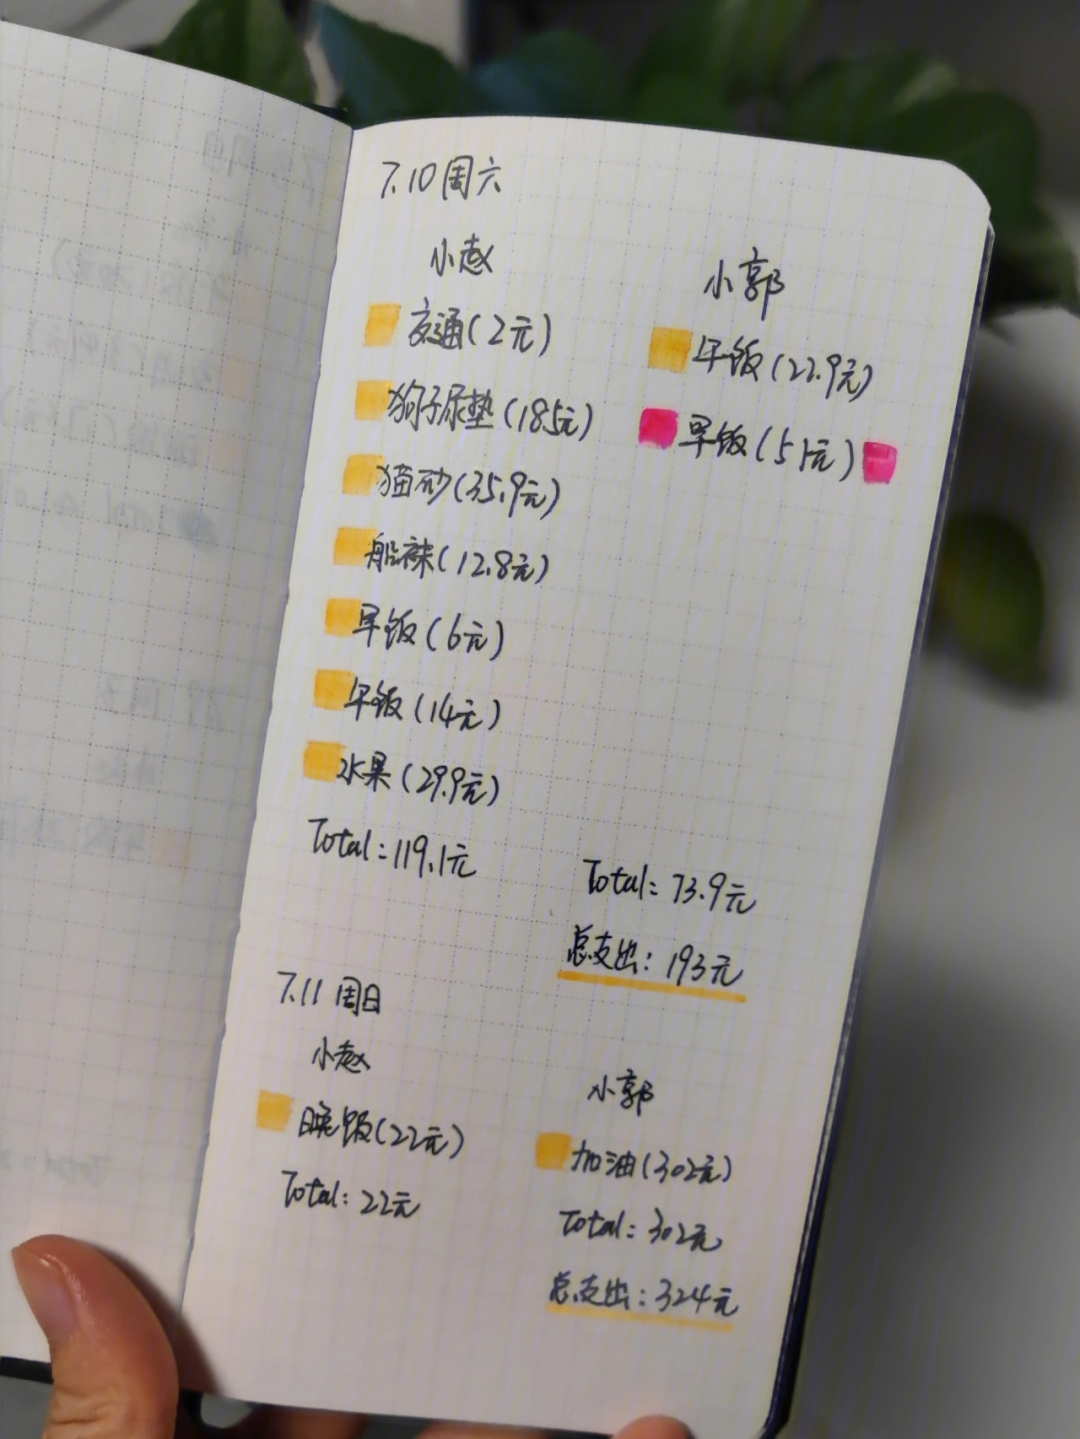 7.10 周六
小赵
交通(2元)
狗子尿垫(18.5元)
猫砂(35.9元)
船袜(12.8元)
早饭(6元)
午饭(14元)
水果(29.9元)
Total:119.1元
小郭
午饭(22.9元)
早饭(51元)
Total:73.9元
总支出:193元
7.11 周日
小赵
晚饭(22元)
Total:22元
小郭
加油(302元)
Total:302元
总支出:324元